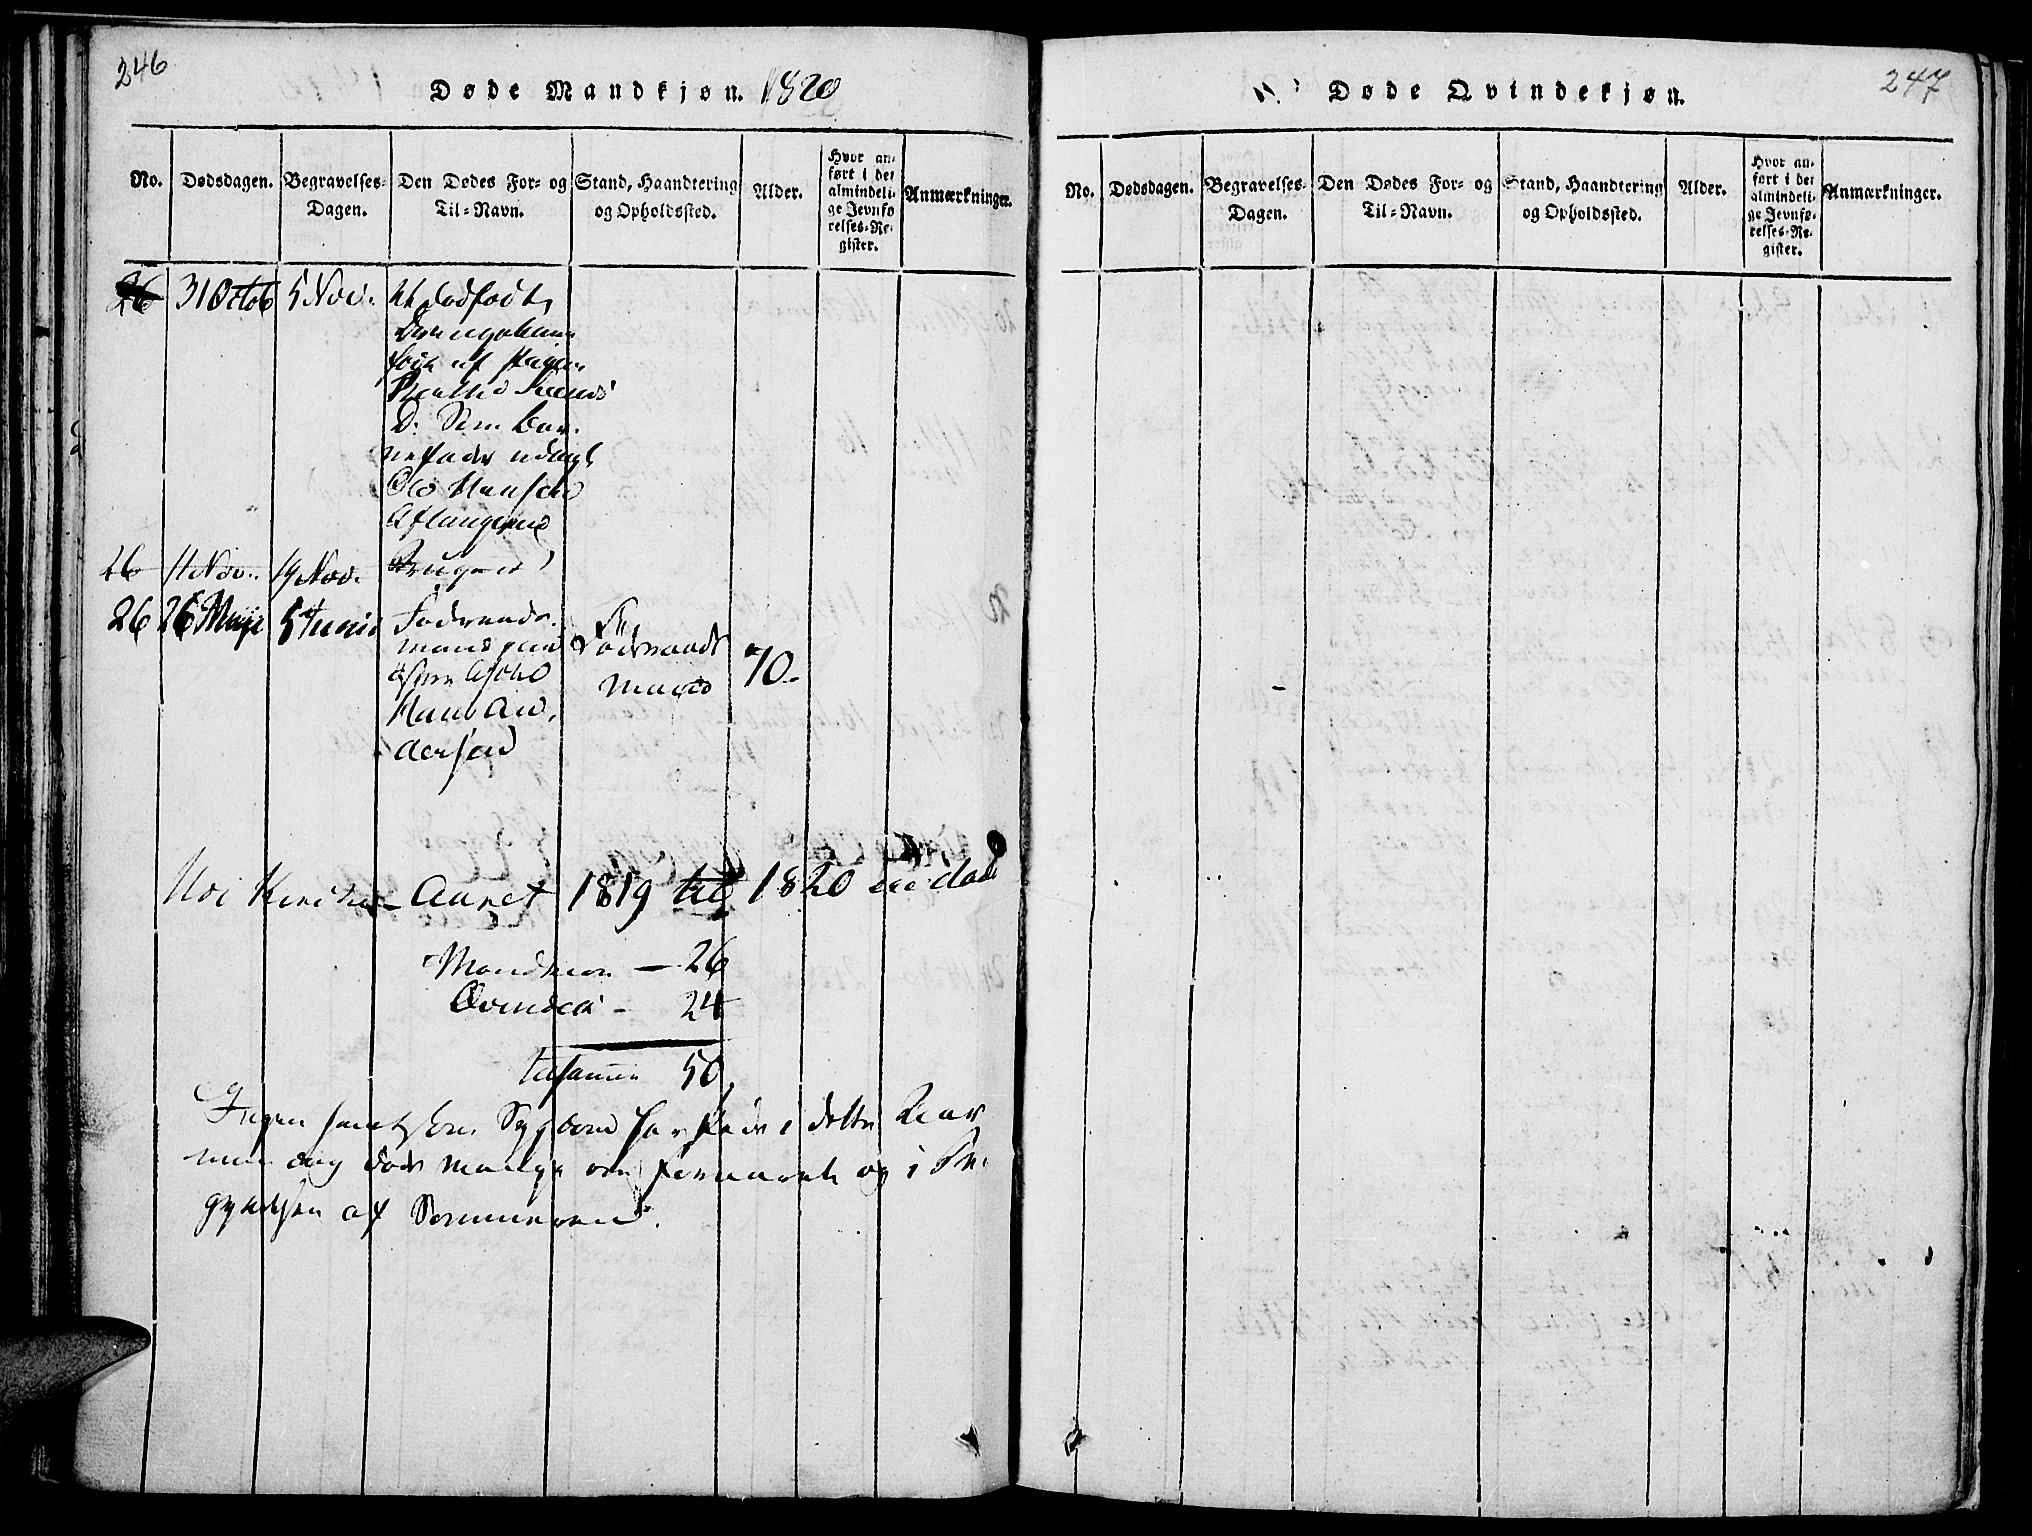 246
Døde Mandkjøn. 1820
No.
Dødsdagen.
Begravelses-
Dagen.
Den Dødes For- og
Til-Navn.
Stand, Haandtering
og Opholdssted.
Alder.
Hvor an-
ført i det
almindeli-
ge Jevnfø-
relses-Re-
gister.
Anmærkninger.
26 31 Octob 5 Nov. Et dødfødt
Drengebarn
født af Pigen
D. Som Bar-
nefader udlagt
Ole Hansen
26 11 Nov. 19 Nov.
26 26 Maji 5 Junii Føderaads-
mand
Føderaads
Mand
70.
Hans An-
dersen
Kirke Aaret 1819 til 1820 ere døde
Mandkiøn — 26
Qvindek - 24
tilsammen 50
Ingen Sygdom har i dette Aar
men dog døde mange om Foraaret og i Be-
gyndelsen af Sommeren.
247
Døde Qvindekjøn.
No.
Dødsdagen.
Begravelses-
Dagen.
Den Dødes For- og
Til-Navn.
Stand, Haandtering
og Opholdssted.
Alder.
Hvor an-
ført i det
almindeli-
ge Jevnfø-
relses-Re-
gister.
Anmærkninger.